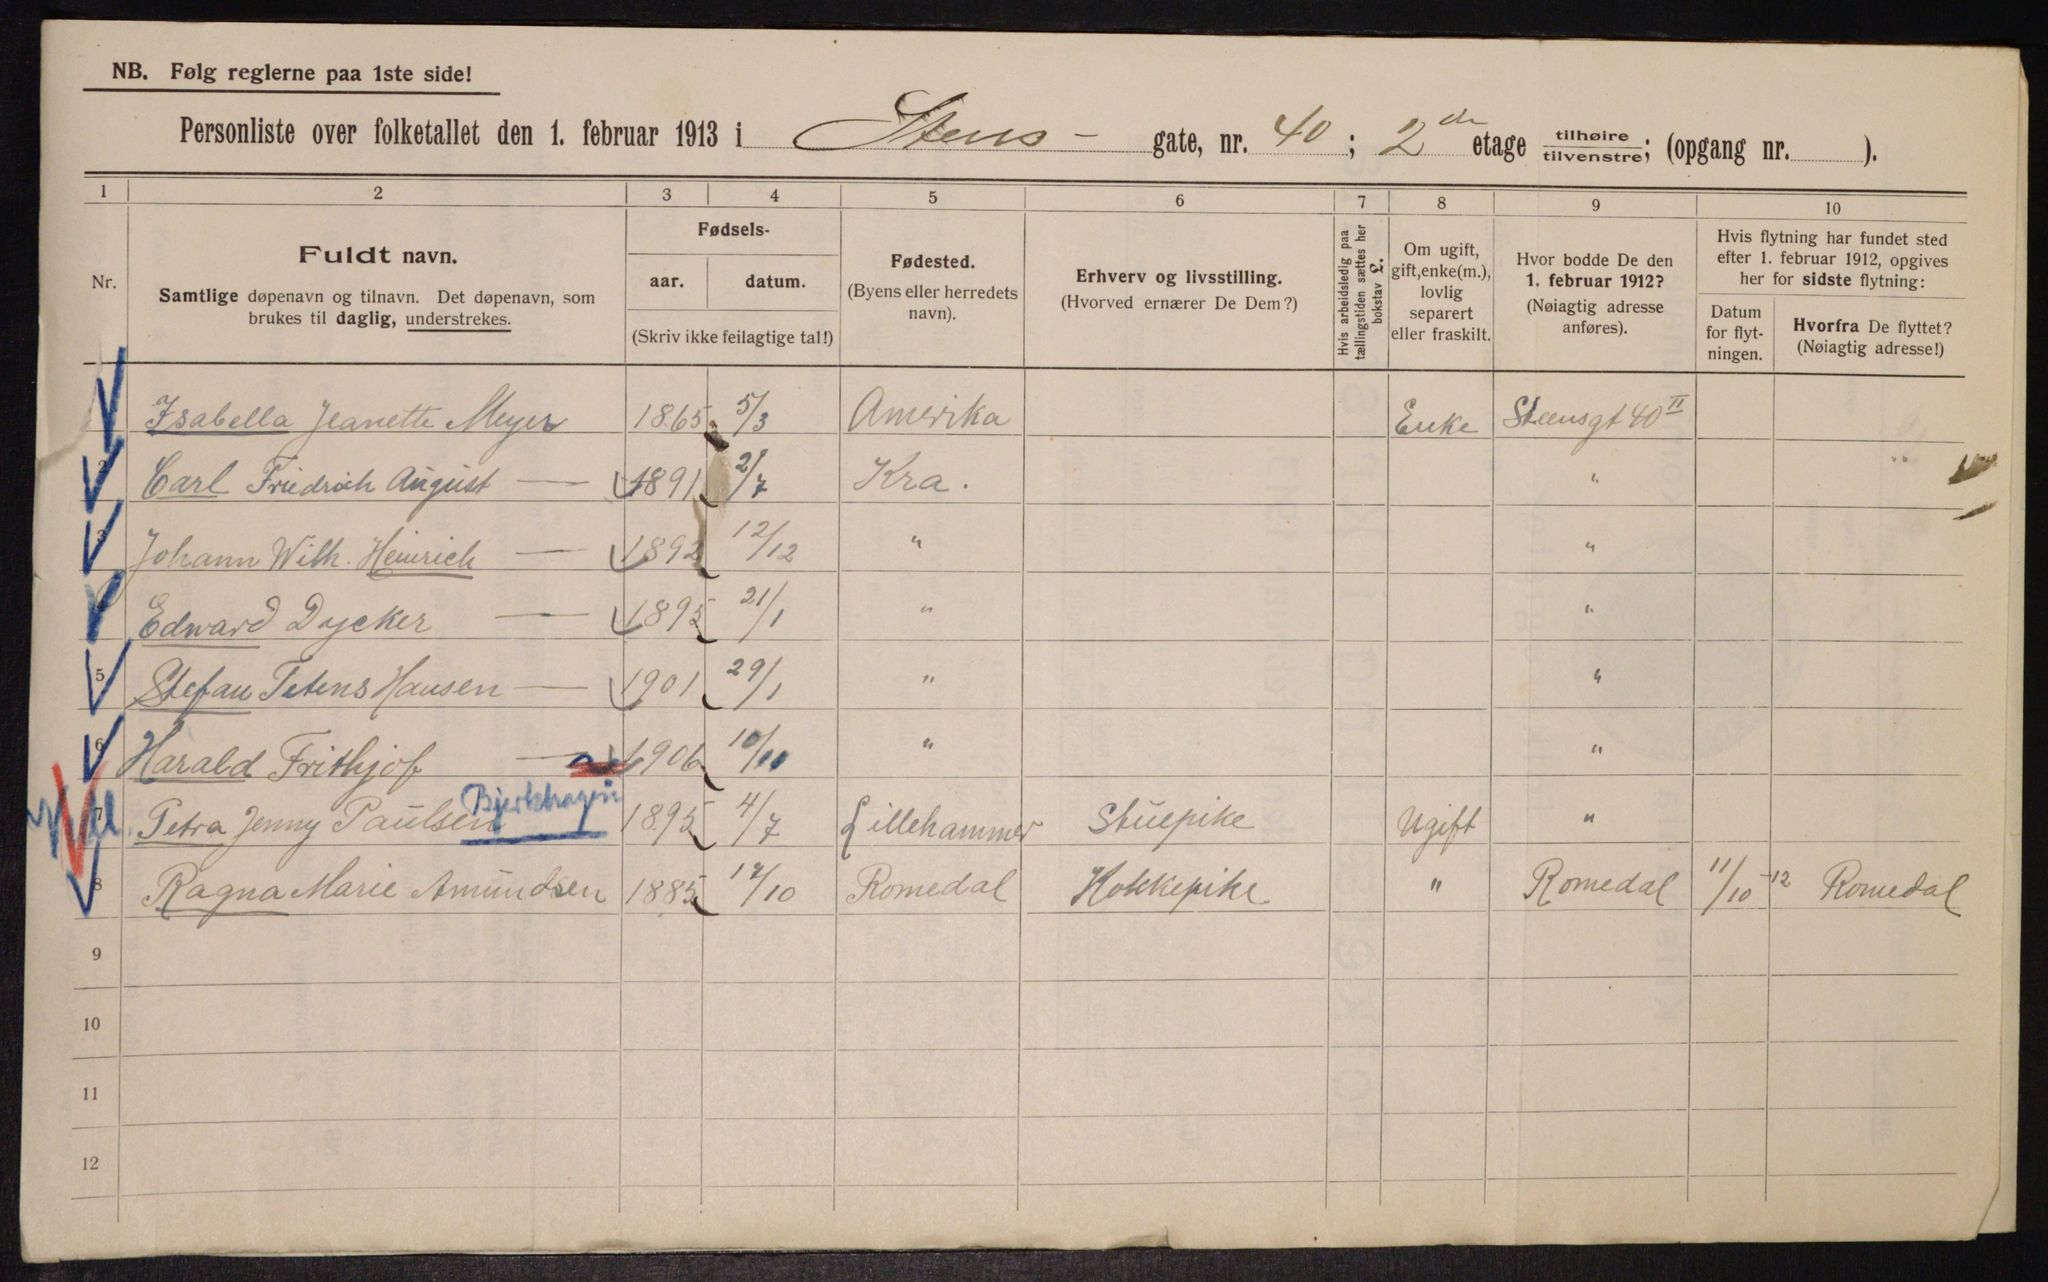 NB. Følg reglerne paa 1ste side!
Personliste over folketallet den 1. februar 1913 i Stens - gate, nr. 40; 2den etage tilhøire/tilvenstre; (opgang nr. ).
1 2 3 4 5 6 7 8 9 10
Nr.
Fuldt navn.
Samtlige døpenavn og tilnavn. Det døpenavn, som
brukes til daglig, understrekes.
Fødsels-
aar. datum.
(Skriv ikke feilagtige tal!)
Fødested.
(Byens eller herredets
navn).
Erhverv og livsstilling.
(Hvorved ernærer De Dem?)
Hvis arbeidsledig paa
tællingstiden sættes her
bokstav L.
Om ugift,
gift, enke(m.),
lovlig
separert
eller fraskilt.
Hvor bodde De den
1. februar 1912?
(Nøiagtig adresse
anføres).
Hvis flytning har fundet sted
efter 1. februar 1912, opgives
her for sidste flytning:
Datum
for flyt-
ningen.
Hvorfra De flyttet?
(Nøiagtig adresse!)
Isabella Jeanette Meyer 1865 5/3 Amerika Enke Steensgt 40 II
2 Carl Friedrich August — 1891 2/7 Kra. "
3 Johann Wilh. Heinrich — 1892 12/12 " "
Edward Dycker — 1895 21/1 " "
5 Stefan Tetens Hansen — 1901 29/1 " "
6 Harald Frithjof — 1906 10/10 " "
Bjerkhagen
7 Petra Jenny Paulsen 1895 4/7 Lillehammer Stuepike Ugift "
8 Ragna Marie Amundsen 1885 17/10 Romedal Kokkepike " Romedal 11/10-12 Romedal
9
10
11
12